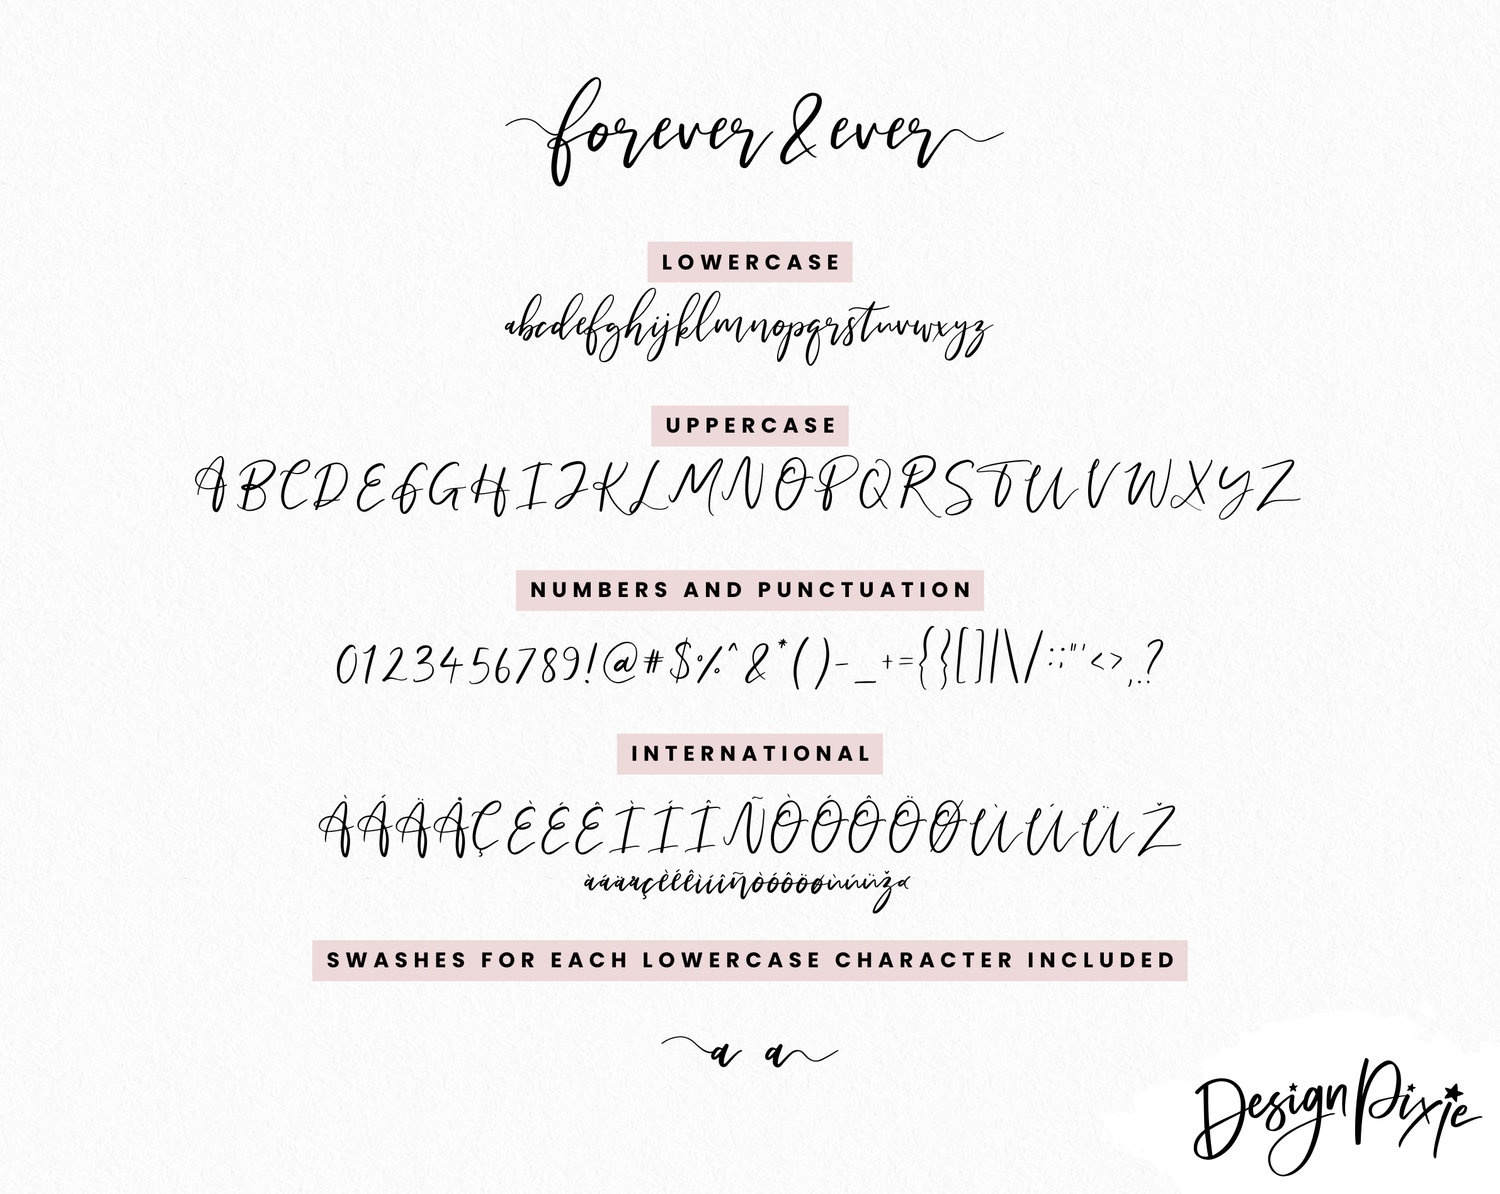 forever & ever
LOWERCASE
abcdefghijklmnopqrstuvwxyz
UPPERCASE
ABCDEFGHIJKLMNOPQRSTUVWXYZ
NUMBERS AND PUNCTUATION
0123456789!@#$%^&*()-_+={}[]|\/:;"'<>,.?
INTERNATIONAL
ÀÁÄÅÇÈÉÊÌÍÎÑÒÓÔÖØÙÚÜŽ
SWASHES FOR EACH LOWERCASE CHARACTER INCLUDED
a a
Design Pixie